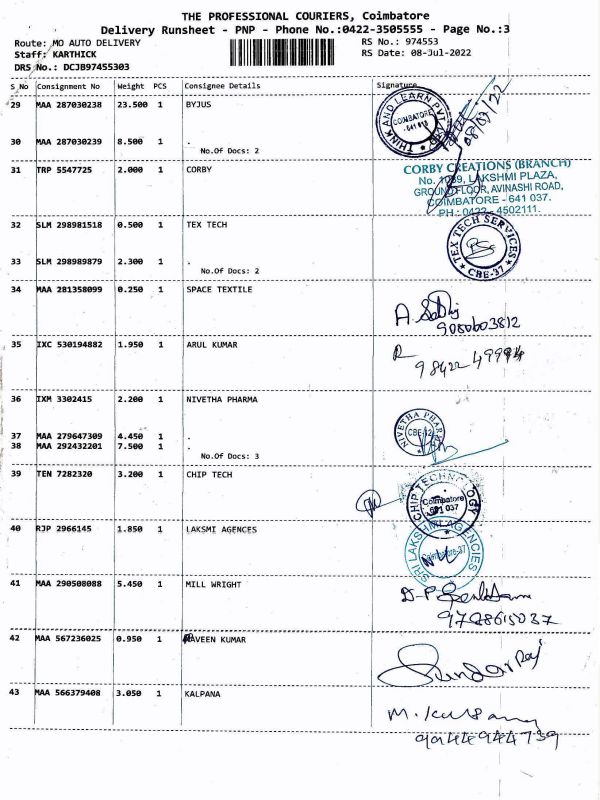 THE PROFESSIONAL COURIERS, Coimbatore
Delivery Runsheet - PNP - Phone No.:0422-3505555 - Page No.:3
Route: MO AUTO DELIVERY RS No.: 974553
Staff: KARTHICK RS Date: 08-Jul-2022
DRS No.: DCJB97455303
S No Consignment No Weight PCS Consignee Details Signature
29 MAA 287030238 23.500 1 BYJUS
THINK AND LEARN PVT
COIMBATORE
641 018
08/07/22
30 MAA 287030239 8.500 1 .
No.Of Docs: 2
31 TRP 5547725 2.000 1 CORBY
CORBY CREATIONS (BRANCH)
No. 1089, LAKSHMI PLAZA,
GROUND FLOOR, AVINASHI ROAD,
COIMBATORE - 641 037.
PH : 0422 - 4502111.
32 SLM 298981518 0.500 1 TEX TECH
TEX TECH SERVICES
CBE-37
33 SLM 298989879 2.300 1 .
No.Of Docs: 2
34 MAA 281358099 0.250 1 SPACE TEXTILE
9080603812
35 IXC 530194882 1.950 1 ARUL KUMAR
98422 49994
36 IXM 3302415 2.200 1 NIVETHA PHARMA
NIVETHA PHARMA
CBE-12
37 MAA 279647309 4.450 1 .
38 MAA 292432201 7.500 1 .
No.Of Docs: 3
39 TEN 7282320 3.200 1 CHIP TECH
CHIP TECHNOLOGY
Coimbatore
641 037
40 RJP 2966145 1.850 1 LAKSMI AGENCES
SRI LAKSHMI AGENCIES
Coimbatore-37
41 MAA 290508088 5.450 1 MILL WRIGHT
9728615037
42 MAA 567236025 0.950 1 NAVEEN KUMAR
Sundar Raj
43 MAA 566379408 3.050 1 KALPANA
9944944739